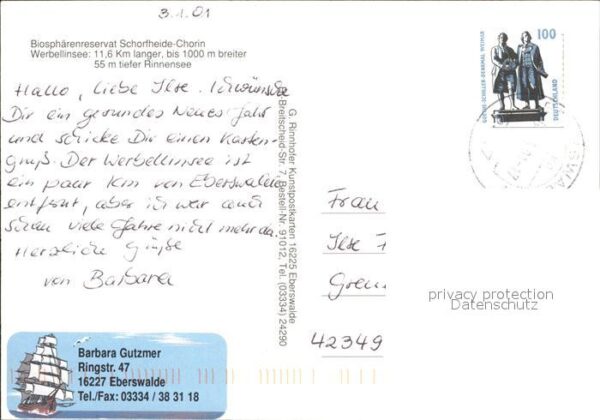 3.1.01
Biosphärenreservat Schorfheide-Chorin
Werbellinsee: 11,6 Km langer, bis 1000 m breiter
55 m tiefer Rinnensee
Hallo, liebe Ilse. Ich wünsche
Dir ein gesundes Neues Jahr
und schicke Dir einen Karten-
gruß. Der Werbellinsee ist
ein paar Km von Eberswalde
entfernt, aber ich war auch
schon viele Jahre nicht mehr da.
Herzliche Grüße
von Barbara
G. Rinnhofer Kunstpostkarten 16225 Eberswalde
Breitscheid-Str. 7, Bestell-Nr. 91012, Tel. (03334) 24290
100
GOETHE-SCHILLER-DENKMAL WEIMAR
DEUTSCHLAND
Frau
Ilse
42349
privacy protection
Datenschutz
Barbara Gutzmer
Ringstr. 47
16227 Eberswalde
Tel./Fax: 03334 / 38 31 18